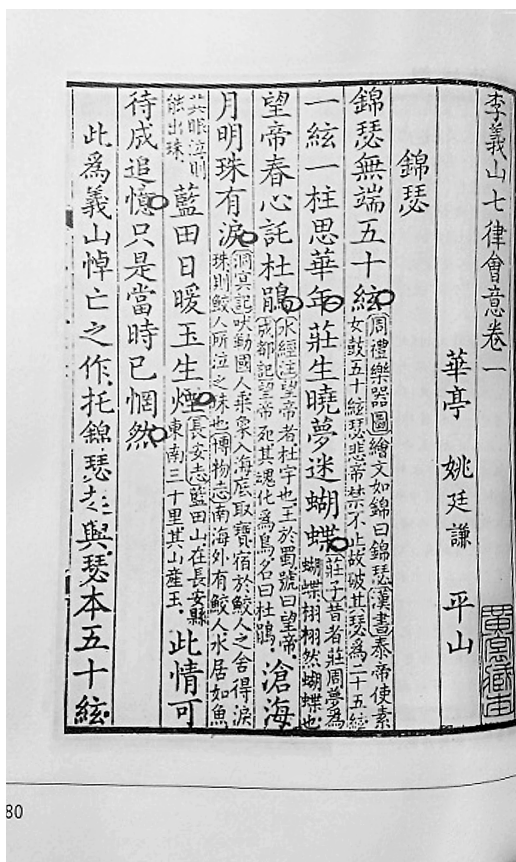 李義山七律會意卷一
華亭 姚廷謙 平山
黃裳藏本
錦瑟
錦瑟無端五十絃
周禮樂器圖繪文如錦曰錦瑟漢書泰帝使素
女鼓五十絃瑟悲帝禁不止故破其瑟爲二十五絃
一絃一柱思華年莊生曉夢迷蝴蝶
莊子昔者莊周夢爲
蝴蝶栩栩然蝴蝶也
望帝春心託杜鵑
水經注望帝者杜宇也王於蜀號曰望帝。
成都記望帝死其魂化爲鳥名曰杜鵑。
滄海
月明珠有淚
洞冥記吠勒國人乘象入海底取寶宿於鮫人之舍得淚
珠則鮫人所泣之珠也博物志南海外有鮫人水居如魚
其眼泣則
能出珠
藍田日暖玉生煙
長安志藍田山在長安縣
東南三十里其山產玉。
此情可
待成追憶只是當時已惘然
此爲義山悼亡之作托錦瑟起與瑟本五十絃
80